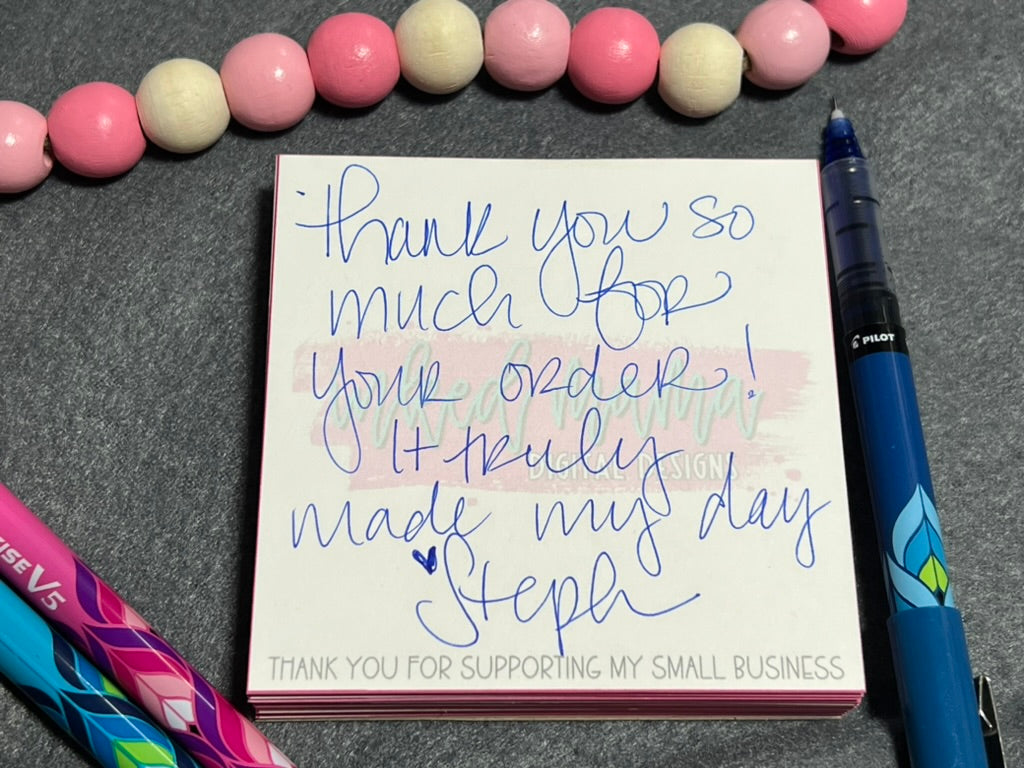 thank you so
much for
your order!
It truly
made my day
♥Steph
inked mama
DIGITAL DESIGNS
THANK YOU FOR SUPPORTING MY SMALL BUSINESS
PILOT
V5